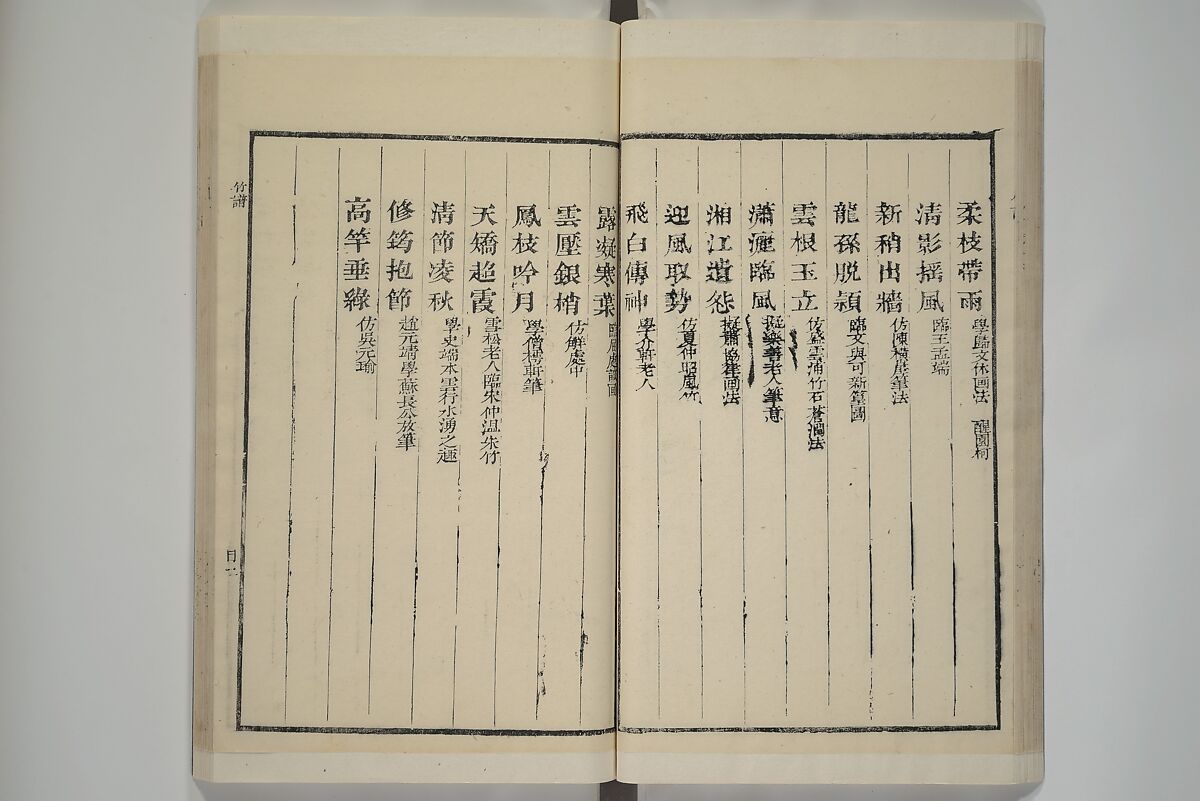 柔枝帶雨 學歸文休画法 醒園柯
清影摇風 臨王孟端
新稍出牆 仿陳橫崖筆法
龍孫脫穎 臨文與可新篁圖
雲根玉立 仿盛雲浦竹石蒼潤法
瀟灑臨風 擬樂善老人筆意
湘江遺怨 擬蕭協律画法
迎風取勢 仿夏仲昭風竹
飛白傳神 學介軒老人
露凝寒葉
雲壓銀梢 仿解處中
鳳枝吟月 學僧樗軒筆
天矯超霞 雪松老人臨宋仲温朱竹
清節凌秋 學史端本雲行水湧之趣
修筠抱節 趙元靖學蘇長公放筆
高竿垂綠 仿吳元瑜
竹譜
目二